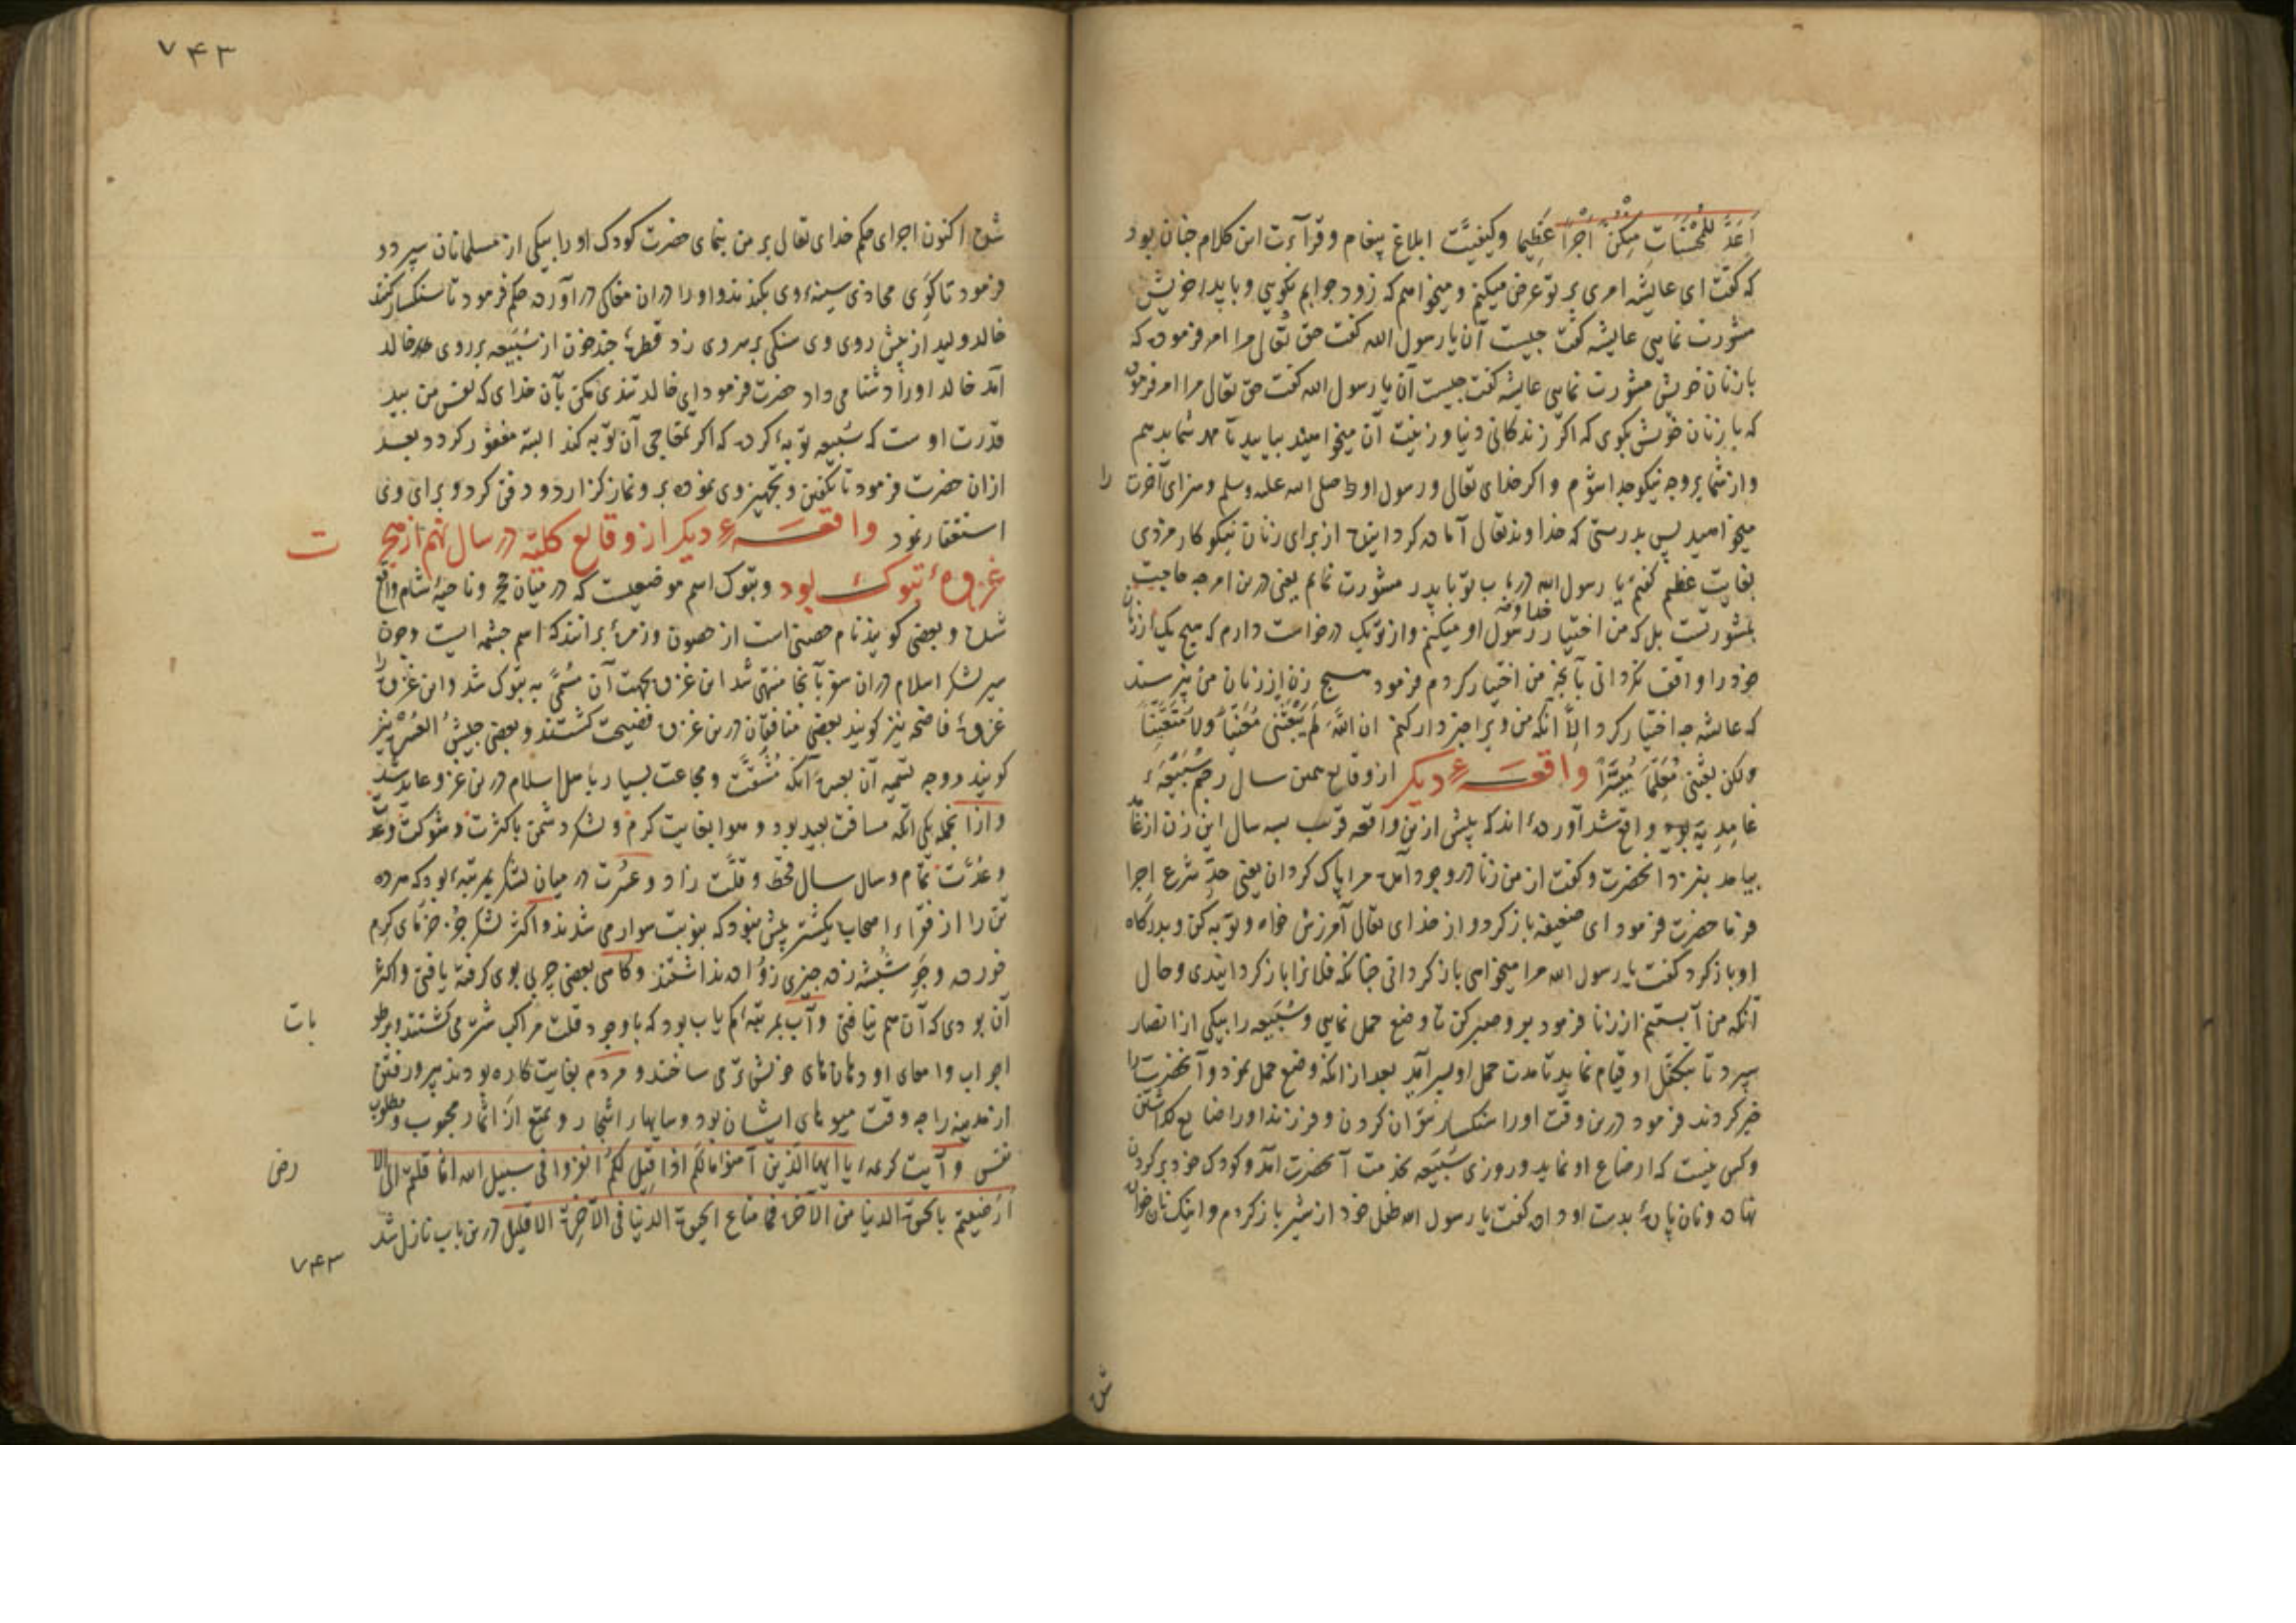 اَعَدَّ لِلْمُحْسِنَاتِ مِنْكُنَّ اَجْرًا عَظِیمًا وکیفیّت ابلاغ پیغام وقرآءت این کلام چنان بود
که گفت ای عایشه امری بر تو عرض میکنم و میخواهم که زود جوابم نکویی و با پدر خویش
مشورت نمایی عایشه گفت چیست آن یا رسول الله گفت حق تعالی مرا امر فرموده که
با زنان خویش مشورت نمایی عایشه گفت چیست آن یا رسول الله گفت حق تعالی مرا امر فرموده
که با زنان خویش بکوی که اکر زندکانی دنیا و زینت آن میخواهید بیایید تا مهر شما بدهم
و از شما بر وجه نیکو جدا شوم و اکر خدای تعالی و رسول او صلی الله علیه وسلم و سرای آخرت را
میخواهید پس بدرستی که خداوند تعالی آماده کردانیده از برای زنان نیکوکار مزدی
بغایت عظیم گفتم یا رسول الله در باب تو با پدر مشورت نمایم یعنی درین امر چه حاجت
بمشورتست بل که من اختیار خدا و رسول او میکنم و از تو یک درخواست دارم که هیچ یک از زنان
خود را واقف نکردانی بآنچه من اختیار کردم فرمود هیچ زن از زنان من نپرسند
که عایشه چه اختیار کرد الّا آنکه من ویرا خبردار کنم ان اللّه لم یبعثنی مُعَنِّتاً ولا مُتَعَنِّتاً
ولکن بعثنی مُعَلِّماً مُیَسِّراً واقعهٔ دیکر از وقایع همین سال رجم سُبَیْعَهٔ
غامدیّه بود واقع شد آورده اند که پیش از این واقعه قریب بسه سال این زن از غا
بیامد بنزد آنحضرت و گفت از من زنا در وجود آمده مرا پاک کردان یعنی حدّ شرع اجرا
فرما حضرت فرمود ای ضعیفه باز کرد و از خدای تعالی آمرزش خواه و توبه کن و بدرکاه
او باز کرد گفت یا رسول الله مرا میخواهی باز کردانی چنانکه فلانرا باز کردانیدی و حال
آنکه من آبستنم از زنا فرمود برو صبر کن تا وضع حمل نمایی و سُبَیعه را بیکی از انصار
سپرد تا بتکفّل او قیام نماید تا مدت حمل او بسر آید بعد از انکه وضع حمل نمود و آنحضرت را
خبر کردند فرمود درین وقت او را سنکسار نتوان کردن و فرزند او را ضایع کذاشتن
و کسی نیست که ارضاع او نماید و روزی سُبَیعه بخدمت آنحضرت آمد و کودک خود بر کردن
نهاده و نان پارهٔ بدست او داده گفت یا رسول الله طفل خود از شیر باز کردم و اینک نان خوان
شده
۷۴۳
شده اکنون اجرای حکم خدای تعالی بر من بنمای حضرت کودک او را بیکی از مسلمانان سپرد و
فرمود تا کوی محاذی سینهٔ وی بکندند و او را دران مغاکی درآورده حکم فرمود تا سنکسار کنند
خالد ولید از پیش روی وی سنکی بر سر وی زد قطرهٔ چند خون از سُبَیعه بر روی خالد
آمد خالد او را دشنامی داد حضرت فرمود ای خالد تندی مکن بآن خدای که نفس من بید
قدرت اوست که سُبیعه توبهٔ کرده که اکر آن توبه کند البته مغفور کردد بعد
ازان حضرت فرمود تا تکفین و تجهیز وی نموده برو نماز کزارد و دفن کرد و برای وی
استغفار نمود واقعهٔ دیکر از وقایع کلیّه در سال نهم از هج ت
غزوهٔ تبوک بود و تبوک اسم موضعیست که در میان حجر و ناحیهٔ شام واقع
شده و بعضی کویند نام حصنی است از حصون و زمرهٔ برانند که اسم چشمه ایست و چون
سیر لشکر اسلام دران سفر بآنجا منتهی شد این غزوه بجهت آن مُسَمّی به تبوک شد و این غزوه را
غزوهٔ فاضحه نیز کویند بعضی منافقان درین غزوه فضیحت کشتند و بعضی جیشُ العُسْرَة نیز
کویند و وجه تسمیه آن بعسره آنکه مُشَقَّت و مجاعت بسیار باهل اسلام درین غزو عاید شد
و از آنجمله یکی آنکه مسافت بعید بود و هوا بغایت کرم و لشکر دشمن با کثرت و شوکت و عد
و عُدَّت تمام و سال سال قحط و قلّت زاد و عُسرت در میان لشکر بمرتبهٔ بود که هر ده
تن را از فقراء اصحاب یکشتر بیش نبود که بنوبت سوار می شدند و اکثر لشکر جز خرمای کرم
خورده و جو شپشه زده چیزی زوّاده نداشتند و کاهی بعضی چربی بوی کرفته یافتی و اکثر
آن بودی که آن هم نیافتی و آب بمرتبهٔ کم یاب بود که باوجود قلت مراکب شتر می کشتند و برطو بات
اجواب و امعای او دهانهای خویش تر می ساختند و مردم بغایت کاره بودند بیرون رفتن
از مدینه را چه وقت میوهای ایشان بود و سایهای اشجار و تمتع از اثمار محبوب و مطلوب
نفس و آیت کریمه یا ایها الذین آمنوا ما لکم اذا قیل لکم انفروا فی سبیل الله اثاقلتم الی الا رض
اَرَضیتم بالحیوة الدنیا من الآخرة فما متاع الحیوة الدنیا فی الآخرة الا قلیل درین باب نازل شد
۷۴۳